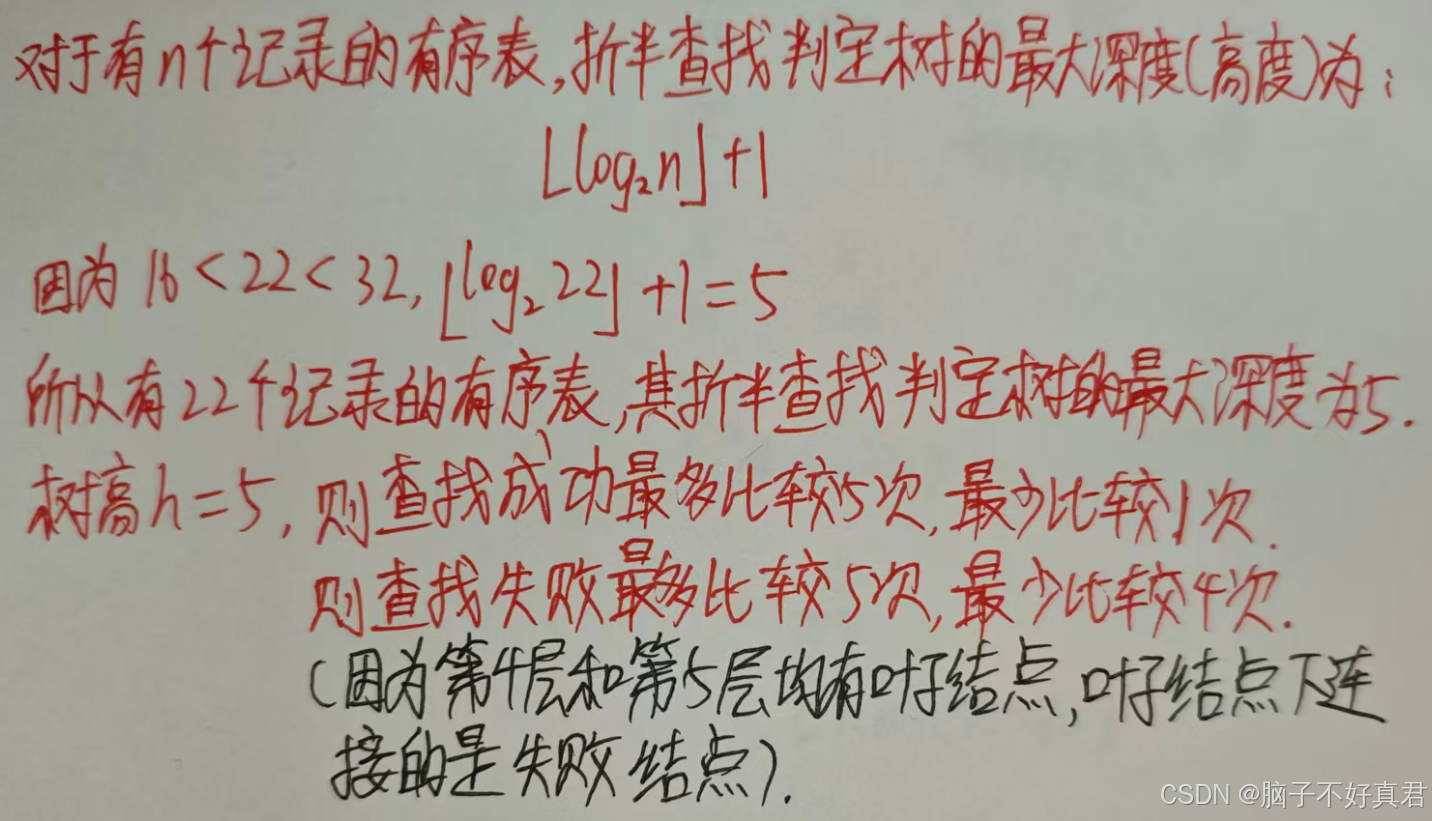 对于有n个记录的有序表,折半查找判定树的最大深度(高度)为:
⌊log₂n⌋+1
因为 16<22<32, ⌊log₂22⌋+1=5
所以有22个记录的有序表,其折半查找判定树的最大深度为5.
树高h=5, 则查找成功最多比较5次, 最少比较1次.
则查找失败最多比较5次, 最少比较4次.
(因为第4层和第5层均有叶子结点,叶子结点下连
接的是失败结点).
CSDN @脑子不好真君